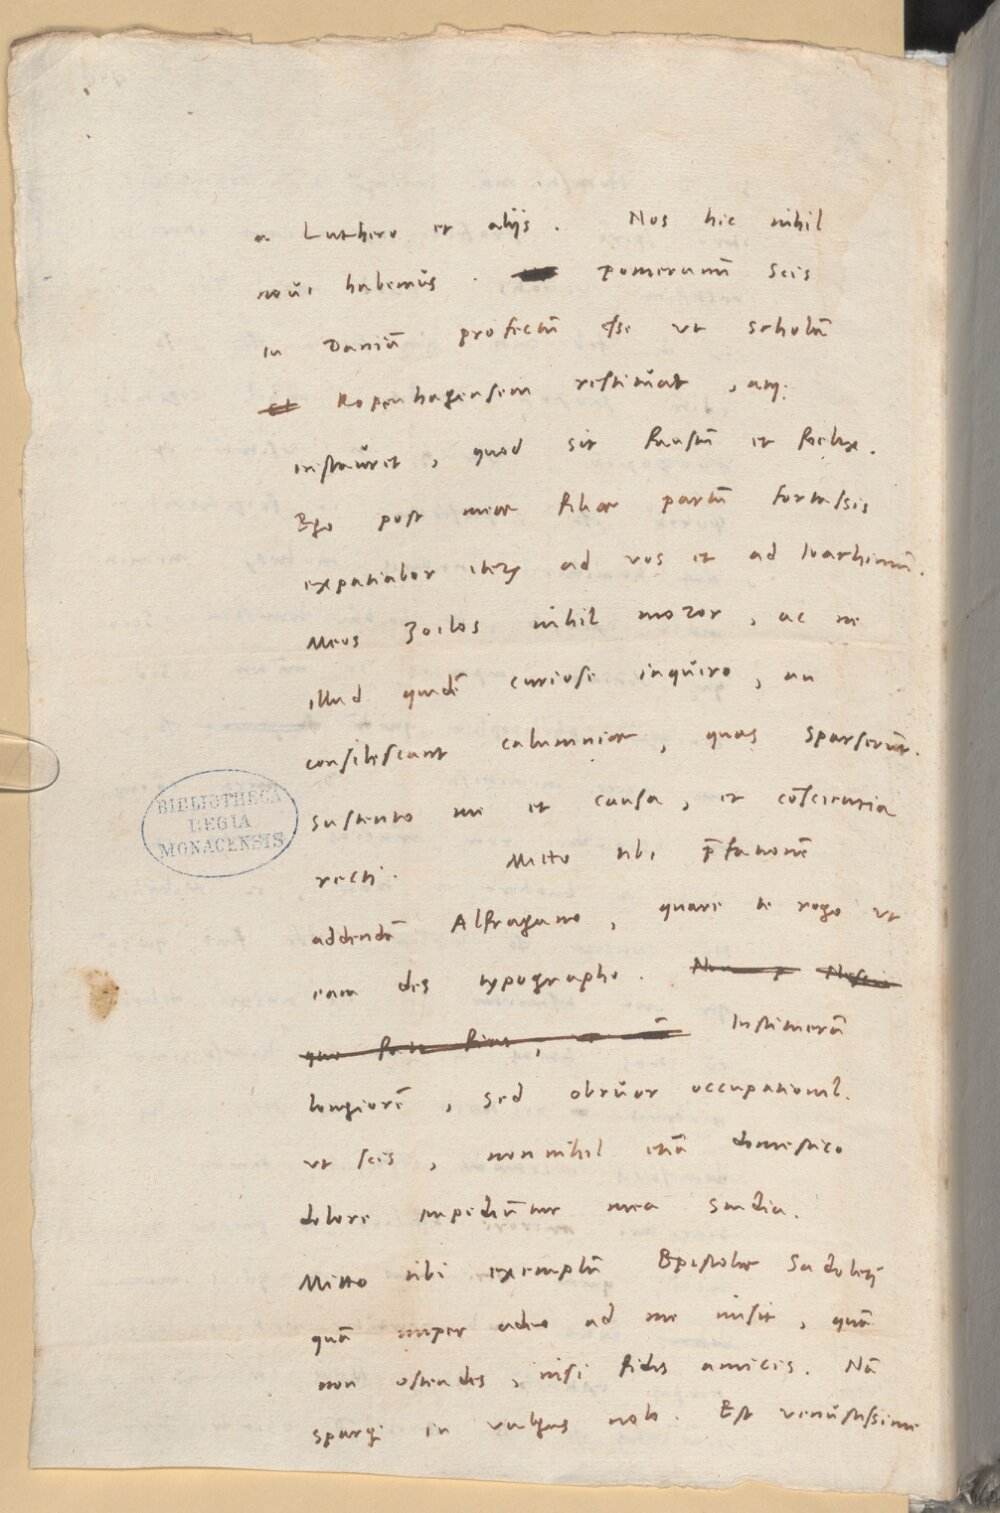 a Luthero et alijs . Nos hic nihil
noui habemus . pomeranū scis
in Daniā profectū esse ut scholā
et Kopenhagensem restituat , atq;
instauret , quod sit faustū et foelix .
Ego post meae filiae partū fortassis
expatiabor iterū ad vos et ad Ioachimū .
Meos Zoilos nihil moror , ac ne
illud quidē curiose inquiro , an
consilescant calumniae , quas sparserūt .
Sustento me et causa , et cōscientia
recti . Mitto tibi p̄fationē
addendā Alfragano , quare te rogo ut
eam des typographo . Non
Institueram
longiorē , sed obruor occupationib.
ut scis , nonnihil etiā domestico
dolore impediūtur mea studia .
Mitto tibi exemplū Epistolae Sadoleti
quā nuper adeo ad me misit , quā
non ostendes , nisi fidis amicis . Nā
spargi in vulgus nolo . Est venustissime
BIBLIOTHECA
REGIA
MONACENSIS